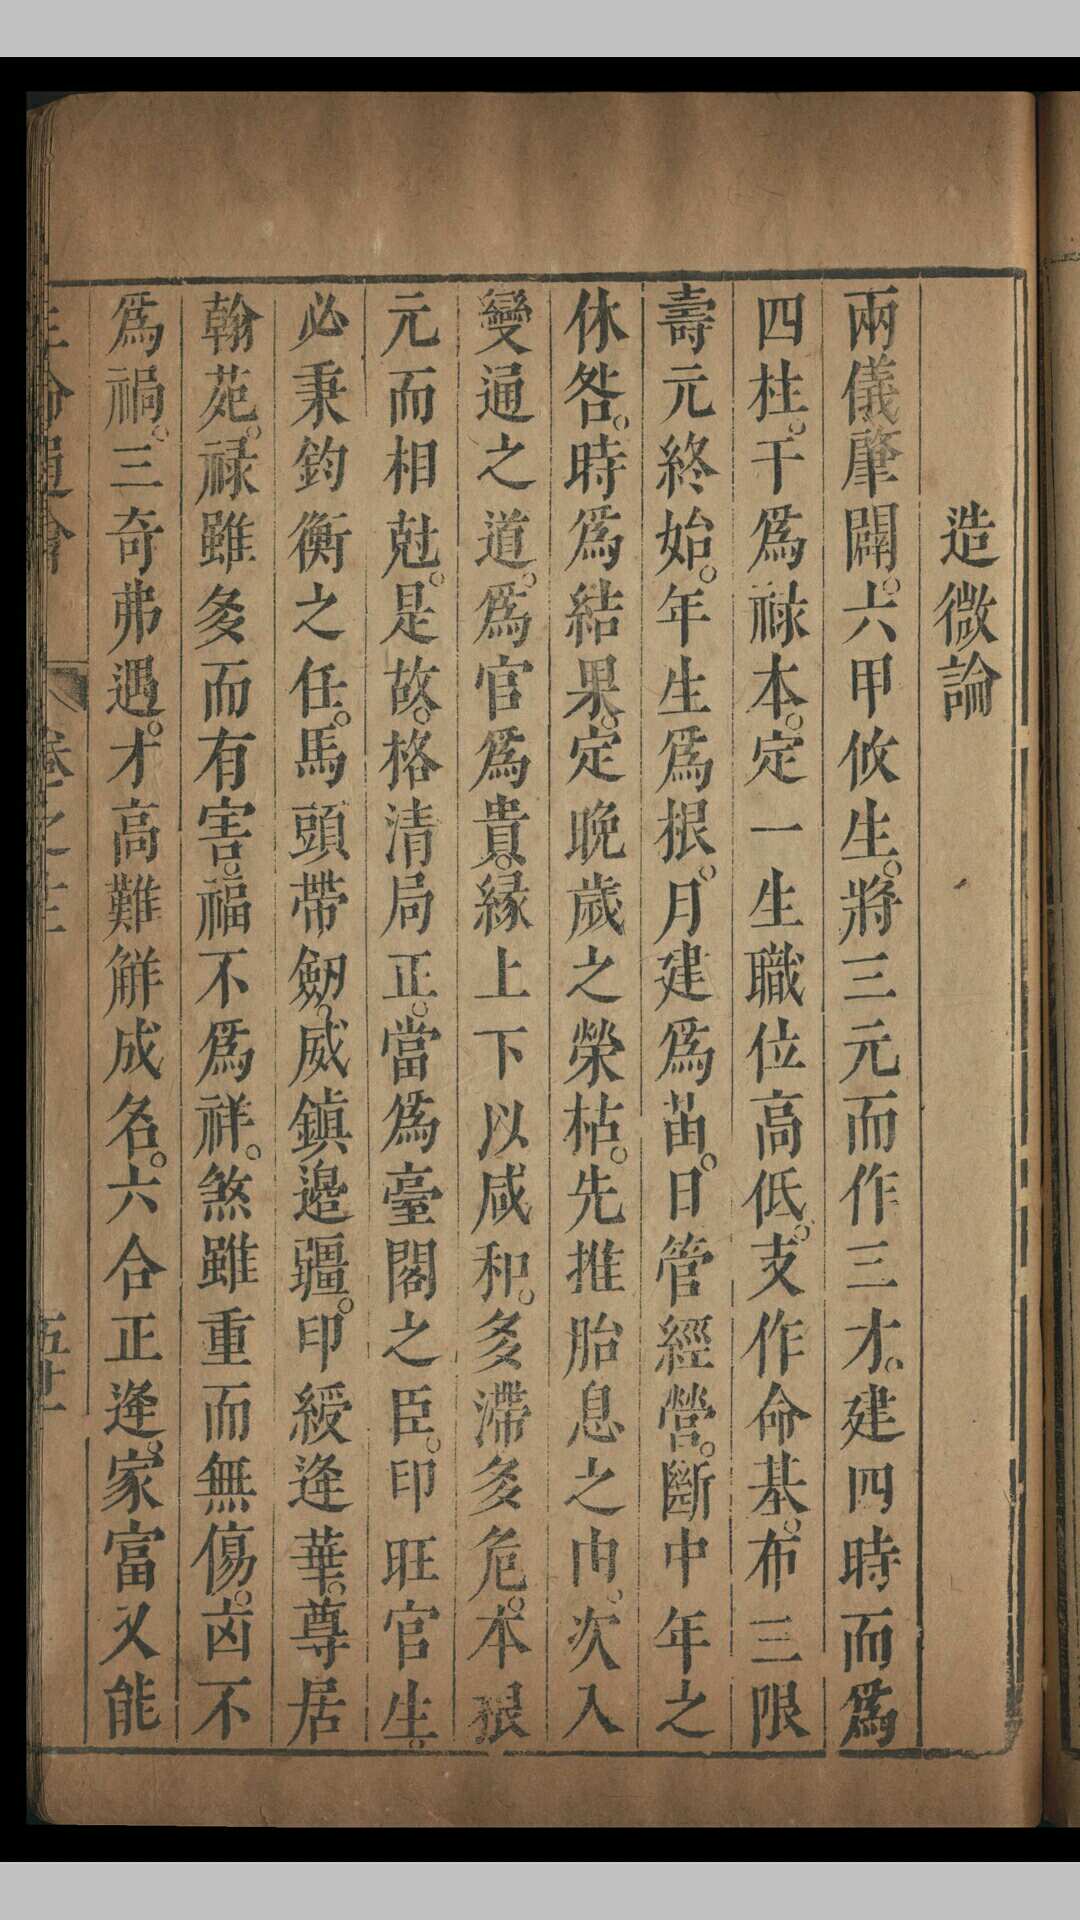 造微論
兩儀肇闢。六甲攸生。將三元而作三才。建四時而爲
四柱。干爲禄本。定一生職位高低。支作命基。布三限
壽元終始。年生爲根。月建爲苗。日管經營。斷中年之
休咎。時爲結果。定晚歲之榮枯。先推胎息之由。次入
變通之道。爲官爲貴。縁上下以咸和。多滯多危。本根
元而相尅。是故。格清局正。當爲臺閣之臣。印旺官生。
必秉鈞衡之任。馬頭帶劒。威鎮邉疆。印綬逢華。尊居
翰苑。禄雖多而有害。福不爲祥。煞雖重而無傷。凶不
爲禍。三奇弗遇。才高難觧成名。六合正逢。家富又能